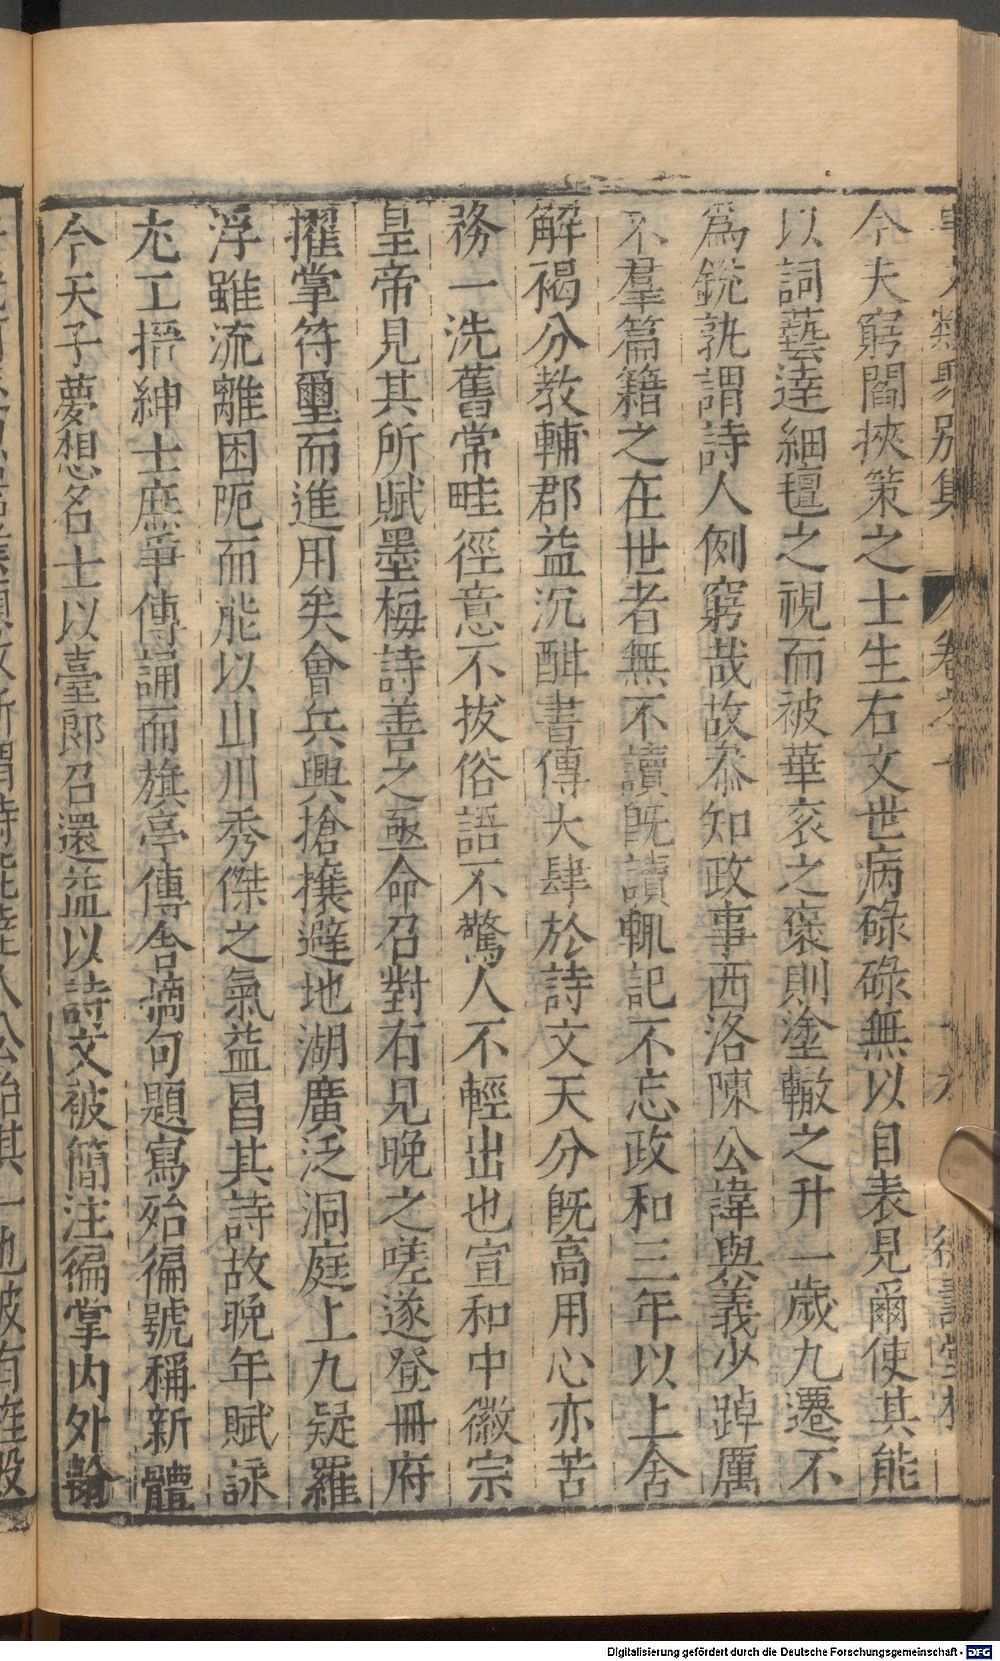 事文類聚別集 卷之十
今夫窮閻挾策之士生右文世病碌碌無以自表見爾使其能
以詞藝達細氊之視而被華衮之褒則塗轍之升一歲九遷不
爲銳孰謂詩人例窮哉故叅知政事西洛陳公諱與義少踔厲
不羣篇籍之在世者無不讀旣讀輒記不忘政和三年以上舍
解褐分教輔郡益沉酣書傳大肆於詩文天分旣高用心亦苦
務一洗舊常畦徑意不拔俗語不驚人不輕出也宣和中徽宗
皇帝見其所賦墨梅詩善之亟命召對有見晚之嗟遂登冊府
擢掌符璽而進用矣會兵興搶攘避地湖廣泛洞庭上九疑羅
浮雖流離困阨而能以山川秀傑之氣益昌其詩故晚年賦詠
尤工搢紳士庶爭傳誦而旗亭傳舍摘句題寫殆徧號稱新體
今天子夢想名士以臺郎召還益以詩文被簡注徧掌內外翰
Digitalisierung gefördert durch die Deutsche Forschungsgemeinschaft - DFG